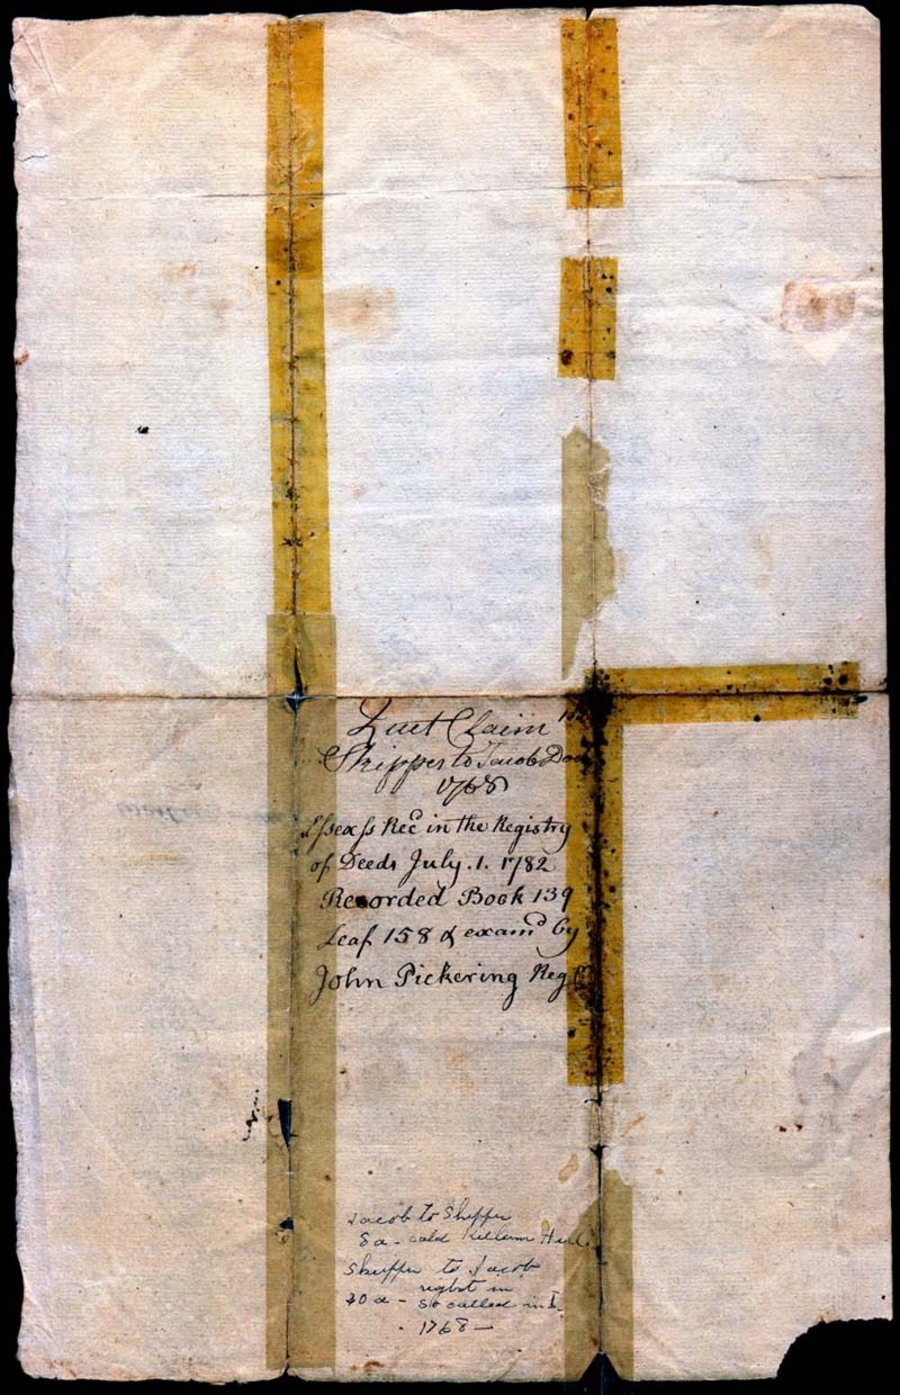 Quit Claim
Skipper to Jacob
1768
Essex ss Recd in the Registry
of Deeds July. 1. 1782
Recorded Book 139
Leaf 158 & examd by
John Pickering Reg
Jacob to Skipper
8 a - cald Killum
Skipper to Jacob
right in
30 a - so called in
1768 —